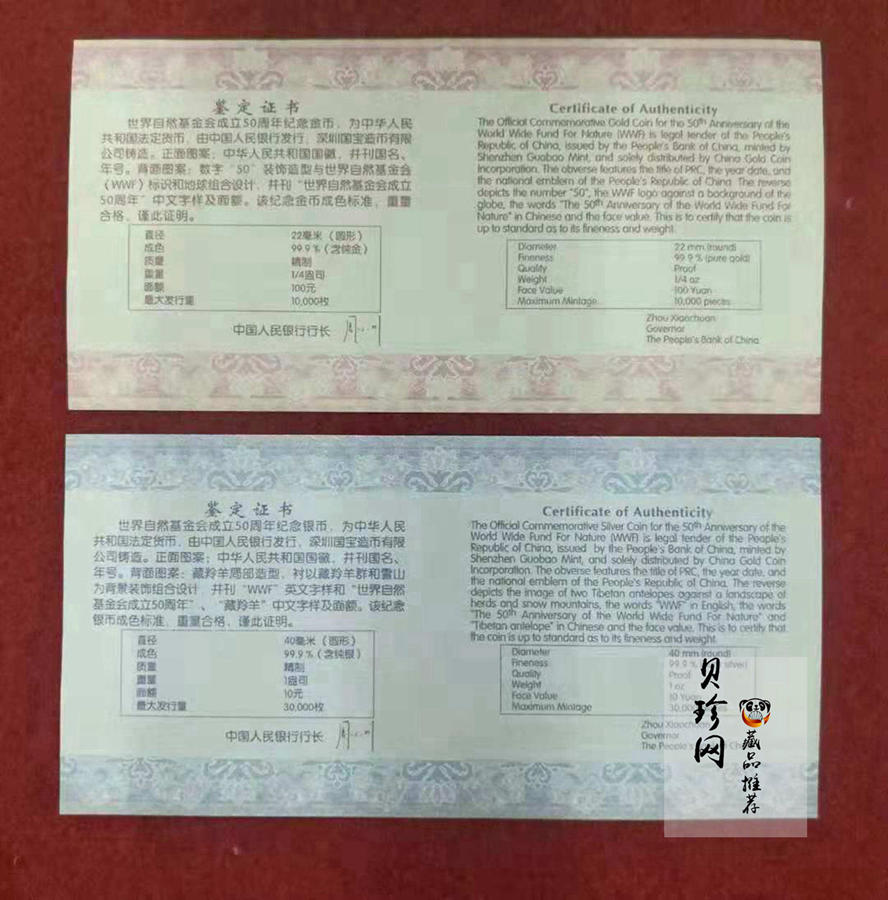 鉴定证书
世界自然基金会成立50周年纪念金币，为中华人民
共和国法定货币，由中国人民银行发行，深圳国宝造币有限
公司铸造。正面图案：中华人民共和国国徽，并刊国名、
年号。背面图案：数字“50”装饰造型与世界自然基金会
（WWF）标识和地球组合设计，并刊“世界自然基金会成立
50周年”中文字样及面额。该纪念金币成色标准，重量
合格，谨此证明。
直径 22毫米（圆形）
成色 99.9%（含纯金）
质量 精制
重量 1/4盎司
面额 100元
最大发行量 10,000枚
中国人民银行行长
Certificate of Authenticity
The Official Commemorative Gold Coin for the 50th Anniversary of the
World Wide Fund For Nature (WWF) is legal tender of the People's
Republic of China, issued by the People's Bank of China, minted by
Shenzhen Guobao Mint, and solely distributed by China Gold Coin
Incorporation. The obverse features the title of PRC, the year date, and
the national emblem of the People's Republic of China. The reverse
depicts the number "50", the WWF logo against a background of the
globe, the words "The 50th Anniversary of the World Wide Fund For
Nature" in Chinese and the face value. This is to certify that the coin is
up to standard as to its fineness and weight.
Diameter 22 mm (round)
Fineness 99.9% (pure gold)
Quality Proof
Weight 1/4 oz
Face Value 100 Yuan
Maximum Mintage 10,000 pieces
Zhou Xiaochuan
Governor
The People's Bank of China
鉴定证书
世界自然基金会成立50周年纪念银币，为中华人民
共和国法定货币，由中国人民银行发行，深圳国宝造币有限
公司铸造。正面图案：中华人民共和国国徽，并刊国名、
年号。背面图案：藏羚羊局部造型，衬以藏羚羊群和雪山
为背景装饰组合设计，并刊“WWF”英文字样和“世界自然
基金会成立50周年”、“藏羚羊”中文字样及面额。该纪念
银币成色标准，重量合格，谨此证明。
直径 40毫米（圆形）
成色 99.9%（含纯银）
质量 精制
重量 1盎司
面额 10元
最大发行量 30,000枚
中国人民银行行长
Certificate of Authenticity
The Official Commemorative Silver Coin for the 50th Anniversary of the
World Wide Fund For Nature (WWF) is legal tender of the People's
Republic of China, issued by the People's Bank of China, minted by
Shenzhen Guobao Mint, and solely distributed by China Gold Coin
Incorporation. The obverse features the title of PRC, the year date, and
the national emblem of the People's Republic of China. The reverse
depicts the image of two Tibetan antelopes against a landscape of
herds and snow mountains, the words "WWF" in English, the words
"The 50th Anniversary of the World Wide Fund For Nature" and
"Tibetan antelope" in Chinese and the face value. This is to certify that
the coin is up to standard as to its fineness and weight.
Diameter 40 mm (round)
Fineness 99.9% silver)
Quality Proof
Weight 1 oz
Face Value 10 Yuan
Maximum Mintage
Zhou Xiaochuan
Governor
The People's
贝珍网
藏品推荐